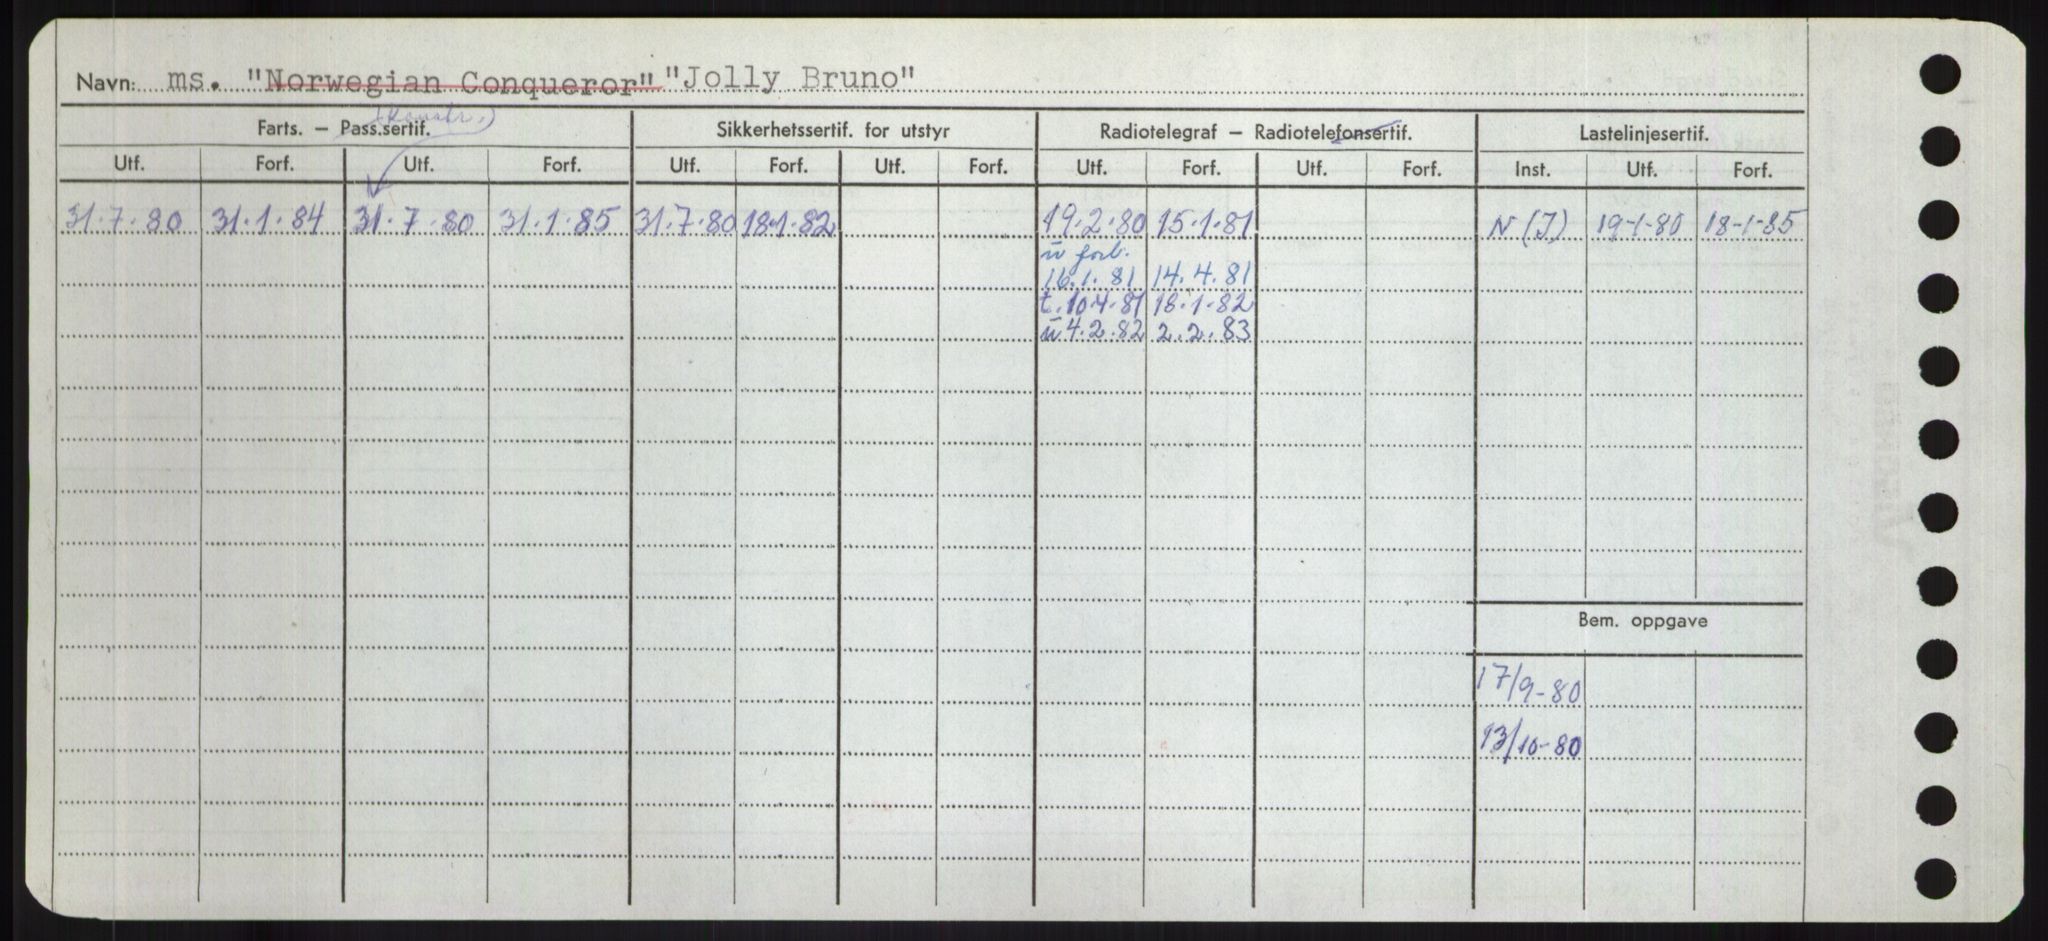 Navn: ms. "Norwegian Conqueror" "Jolly Bruno"
(Konstr.)
Farts. – Pass.sertif. Sikkerhetssertif. for utstyr Radiotelegraf – Radiotelefonsertif. Lastelinjesertif.
Utf. Forf. Utf. Forf. Utf. Forf. Utf. Forf. Utf. Forf. Utf. Forf. Inst. Utf. Forf.
31.7.80 31.1.84 31.7.80 31.1.85 31.7.80 18.1.82 19.2.80 15.1.81 N (I) 19-1-80 18-1-85
u forb.
16.1.81 14.4.81
t.10.4.81 18.1.82
u 4.2.82 2.2.83
Bem. oppgave
17/9-80
13/10-80